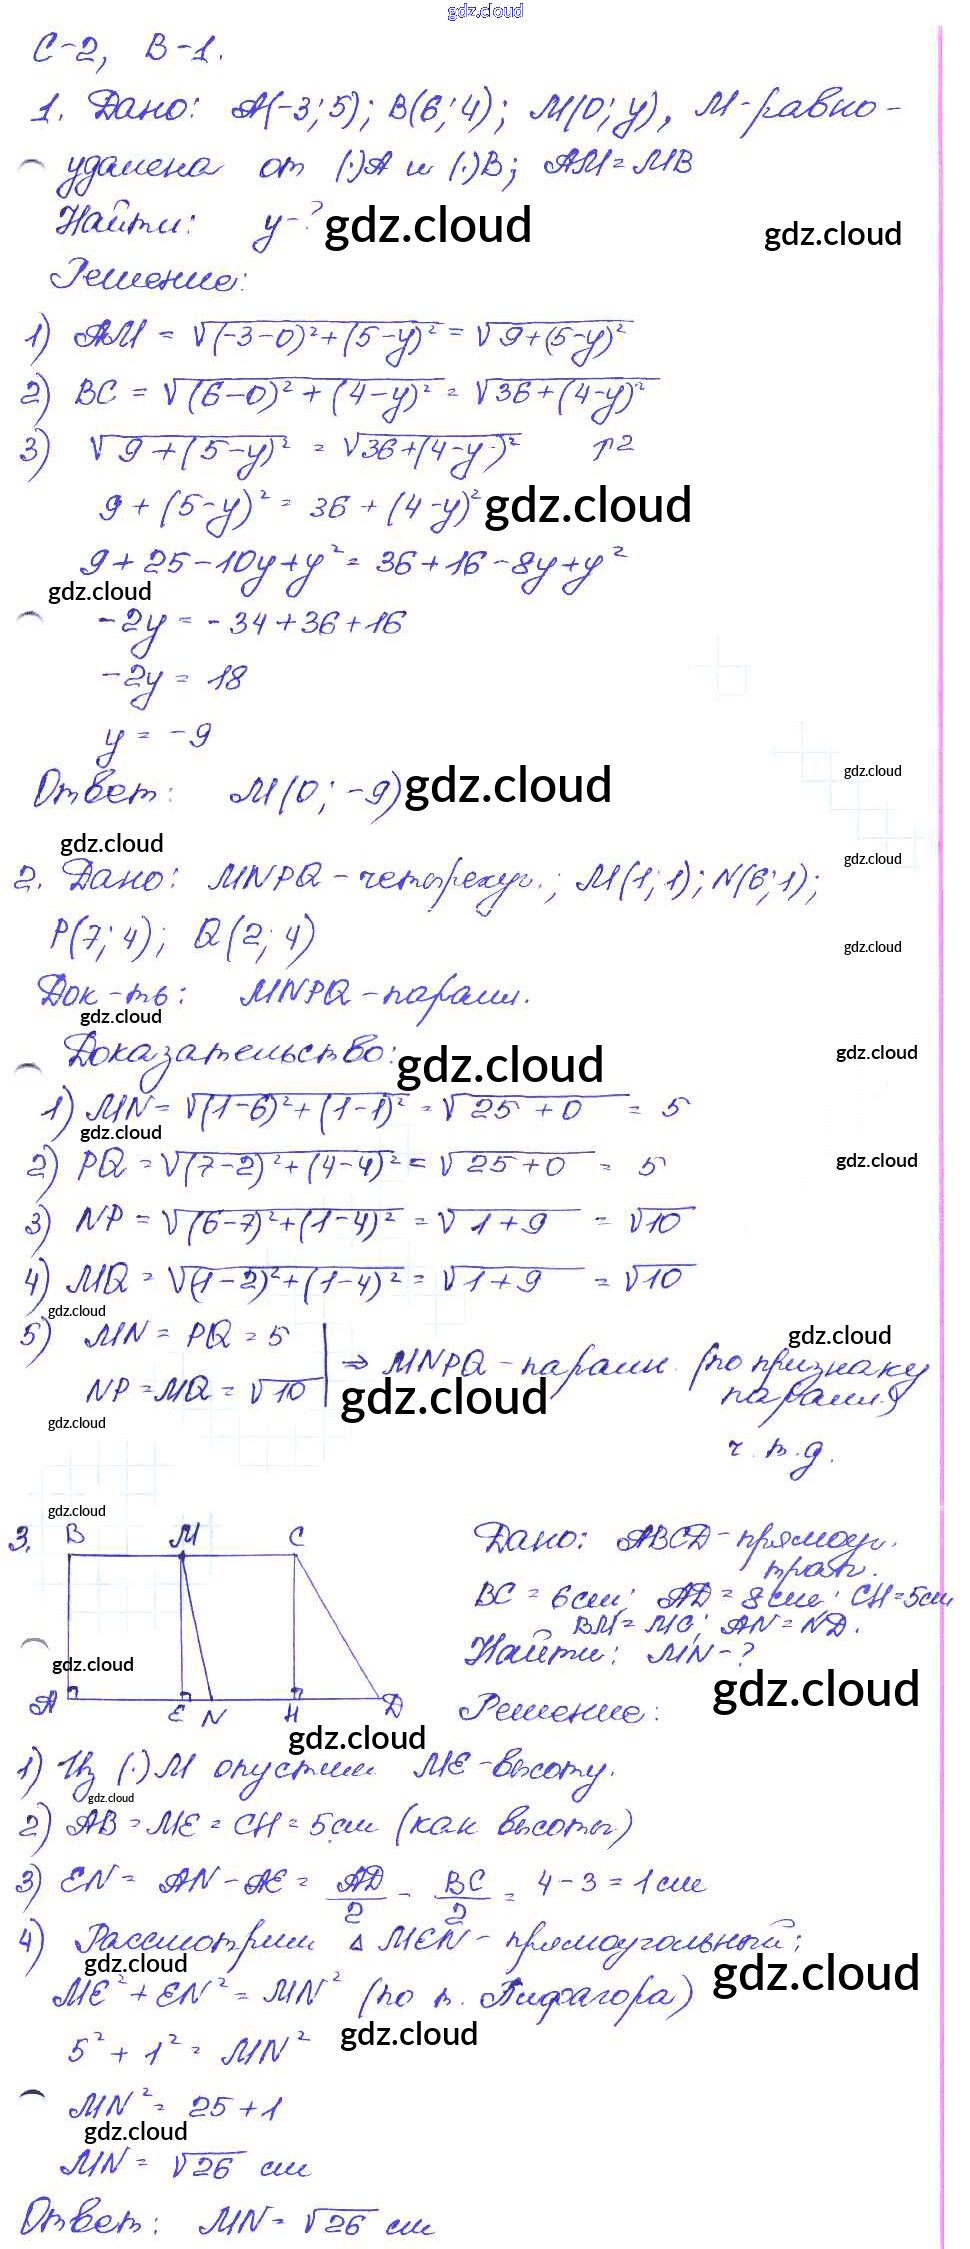 gdz.cloud
С-2, В-1.
1. Дано: A(-3; 5); B(6; 4); M(0; y), M-равно-
удалена от (·)A и (·)B; AM = MB
Найти: y-?
gdz.cloud
gdz.cloud
Решение:
1) AM = √((-3-0)²+(5-y)²) = √(9+(5-y)²)
2) BC = √((6-0)²+(4-y)²) = √(36+(4-y)²)
3) √(9+(5-y)²) = √(36+(4-y)²) ↑2
9+(5-y)² = 36+(4-y)²
gdz.cloud
9+25-10y+y² = 36+16-8y+y²
gdz.cloud
-2y = -34+36+16
-2y = 18
y = -9
gdz.cloud
Ответ: M(0; -9)
gdz.cloud
gdz.cloud
gdz.cloud
2. Дано: MNPQ-четырехуг.; M(1; 1); N(6; 1);
P(7; 4); Q(2; 4)
gdz.cloud
Док-ть: MNPQ-паралл.
gdz.cloud
Доказательство:
gdz.cloud
gdz.cloud
1) MN = √((1-6)²+(1-1)²) = √(25+0) = 5
gdz.cloud
2) PQ = √((7-2)²+(4-4)²) = √(25+0) = 5
gdz.cloud
3) NP = √((6-7)²+(1-4)²) = √(1+9) = √10
4) MQ = √((1-2)²+(1-4)²) = √(1+9) = √10
gdz.cloud
5) MN = PQ = 5
gdz.cloud
NP = MQ = √10 | ⇒ MNPQ-паралл. (по признаку
паралл.)
gdz.cloud
gdz.cloud
ч.т.д.
gdz.cloud
3. B M C
A E N H D
gdz.cloud
Дано: ABCD-прямоуг.
трап.
BC = 6см; AD = 8см; CH = 5см
BM = MC; AN = ND.
Найти: MN-?
gdz.cloud
Решение:
gdz.cloud
1) Из (·)M опустим ME-высоту.
gdz.cloud
2) AB = ME = CH = 5см (как высоты)
3) EN = AN - AE = AD/2 - BC/2 = 4-3 = 1см
4) Рассмотрим △MEN-прямоугольный:
gdz.cloud
gdz.cloud
ME²+EN² = MN² (по т. Пифагора)
gdz.cloud
5²+1² = MN²
MN² = 25+1
gdz.cloud
MN = √26 см
Ответ: MN = √26 см